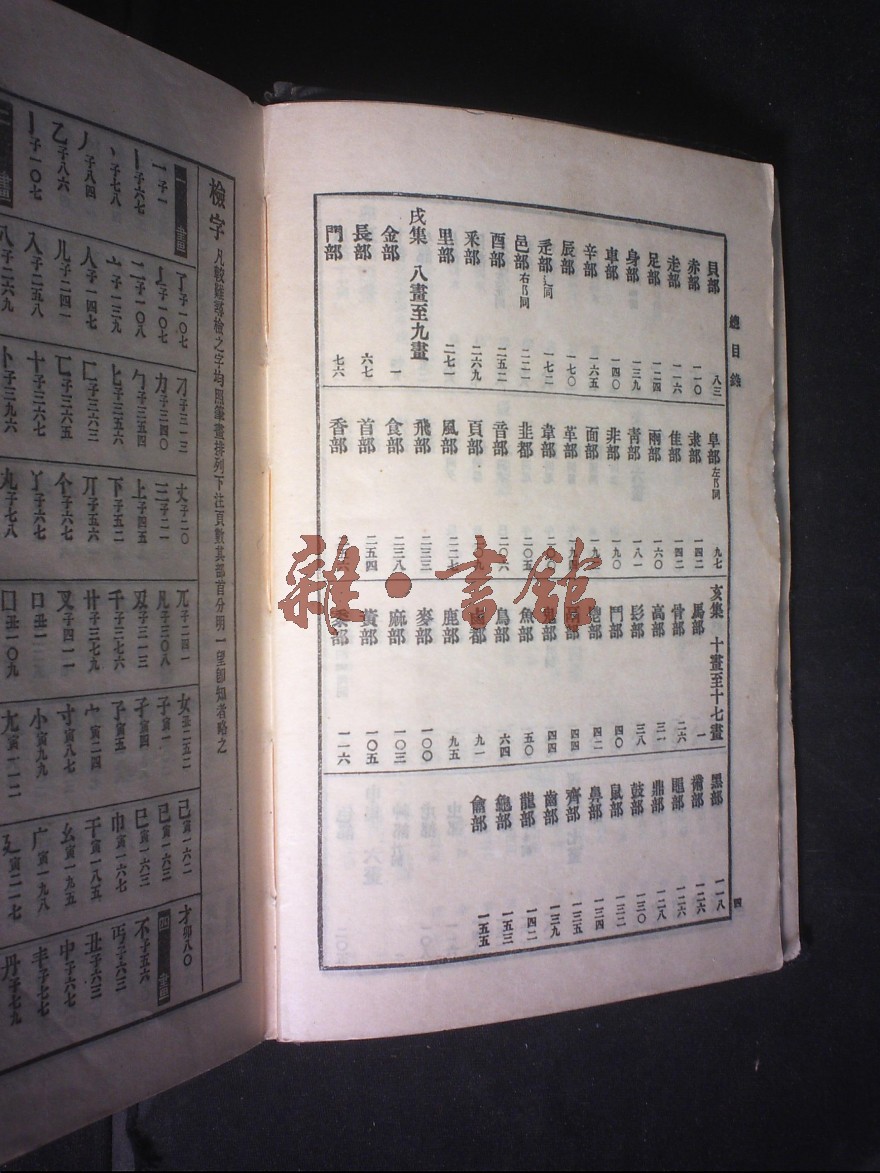 總目錄
四
貝部 八三
赤部 一一〇
走部 一一六
足部 一二四
身部 一三九
車部 一四〇
辛部 一六五
辰部 一七〇
辵部 辶同 一七二
邑部 右阝同 二二一
酉部 二五二
釆部 二六九
里部 二七一
戌集 八畫至九畫
金部 一
長部 六七
門部 七六
阜部 左阝同 九七
隶部 一四二
隹部 一四二
雨部 一六〇
靑部 一八一
非部 一九〇
面部
革部
韋部 二〇〇
韭部 二〇五
音部 二〇六
頁部 二〇九
風部 二二七
飛部 二三三
食部 二三八
首部 二五四
香部
亥集 十畫至十七畫
馬部 一
骨部 二六
高部 三一
髟部 三八
鬥部 四〇
鬯部 四二
鬲部 四四
鬼部 四四
魚部 五〇
鳥部 六四
鹵部 九一
鹿部 九五
麥部 一〇〇
麻部 一〇三
黃部 一〇五
黍部 一一六
黑部 一一八
黹部 一二六
黽部 一二六
鼎部 一二八
鼓部 一三〇
鼠部 一三二
鼻部 一三四
齊部 一三五
齒部 一三九
龍部 一四二
龜部 一五三
龠部 一五五
雜·書館
檢字 凡較難尋檢之字均照筆畫排列下注頁數其部首分明一望卽知者略之
一畫
一 子一
丨 子六七
丶 子七八
丿 子八四
乙 子八六
亅 子一〇七
二畫
了 子一〇七
亅 子一〇七
二 子一〇八
亠 子一三九
人 子一四七
儿 子二四一
入 子二五八
八 子二六九
刀 子三一三
力 子三四〇
勹 子三五四
匕 子三五六
匚 子三六三
匸 子三六四
十 子三六七
卜 子三九六
丈 子二〇
三 子二一
上 子四五
下 子五二
丌 子五六
个 子六七
丫 子六七
丸 子七八
兀 子二四一
凡 子三〇八
刄 子三一三
千 子三七六
卄 子三七九
叉 子四一一
口 丑一
囗 丑一〇九
女 丑二五二
子 寅一
孑 寅四
孓 寅五
宀 寅二四
寸 寅八七
小 寅九九
尢 寅一一二
己 寅一六二
已 寅一六三
巳 寅一六三
巾 寅一六七
干 寅一八五
幺 寅一九五
广 寅一九八
廴 寅二一七
才 卯八〇
四畫
不 子五六
丏 子六三
丑 子六三
中 子六七
丰 子七七
丹 子七九